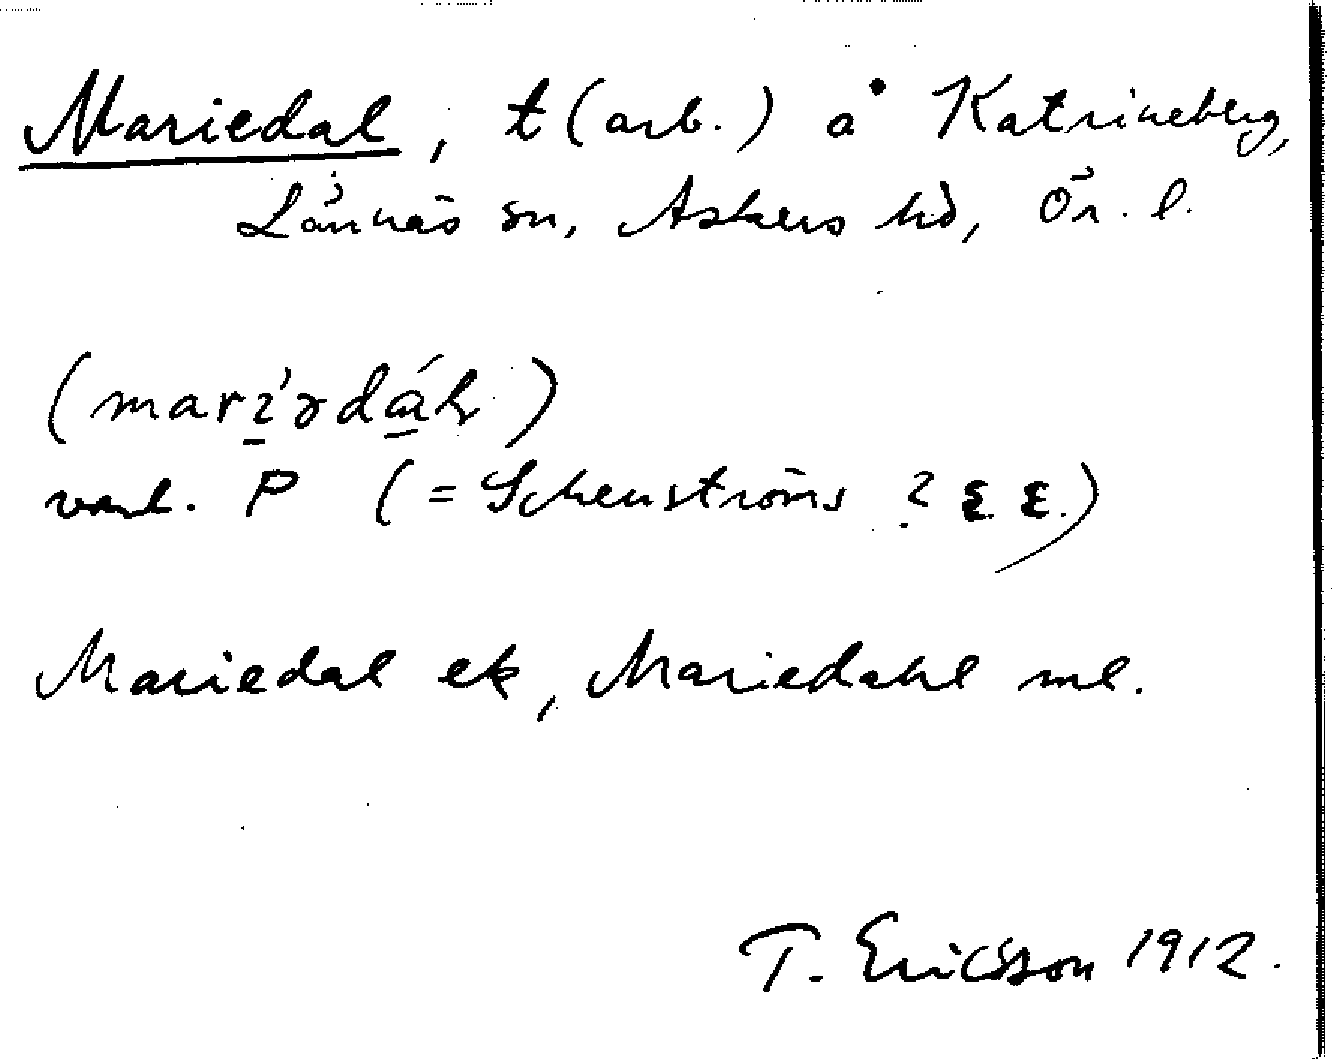 Mariedal, t (arb.) å Katrineberg,
Lännäs sn, Askers hd, Ör. l.
(marí̱ədá̱ɫ)
vanl. P (= Schenströms ? E. E.)
Mariedal ek, Mariedahl ml.
T. Ericsson 1912.